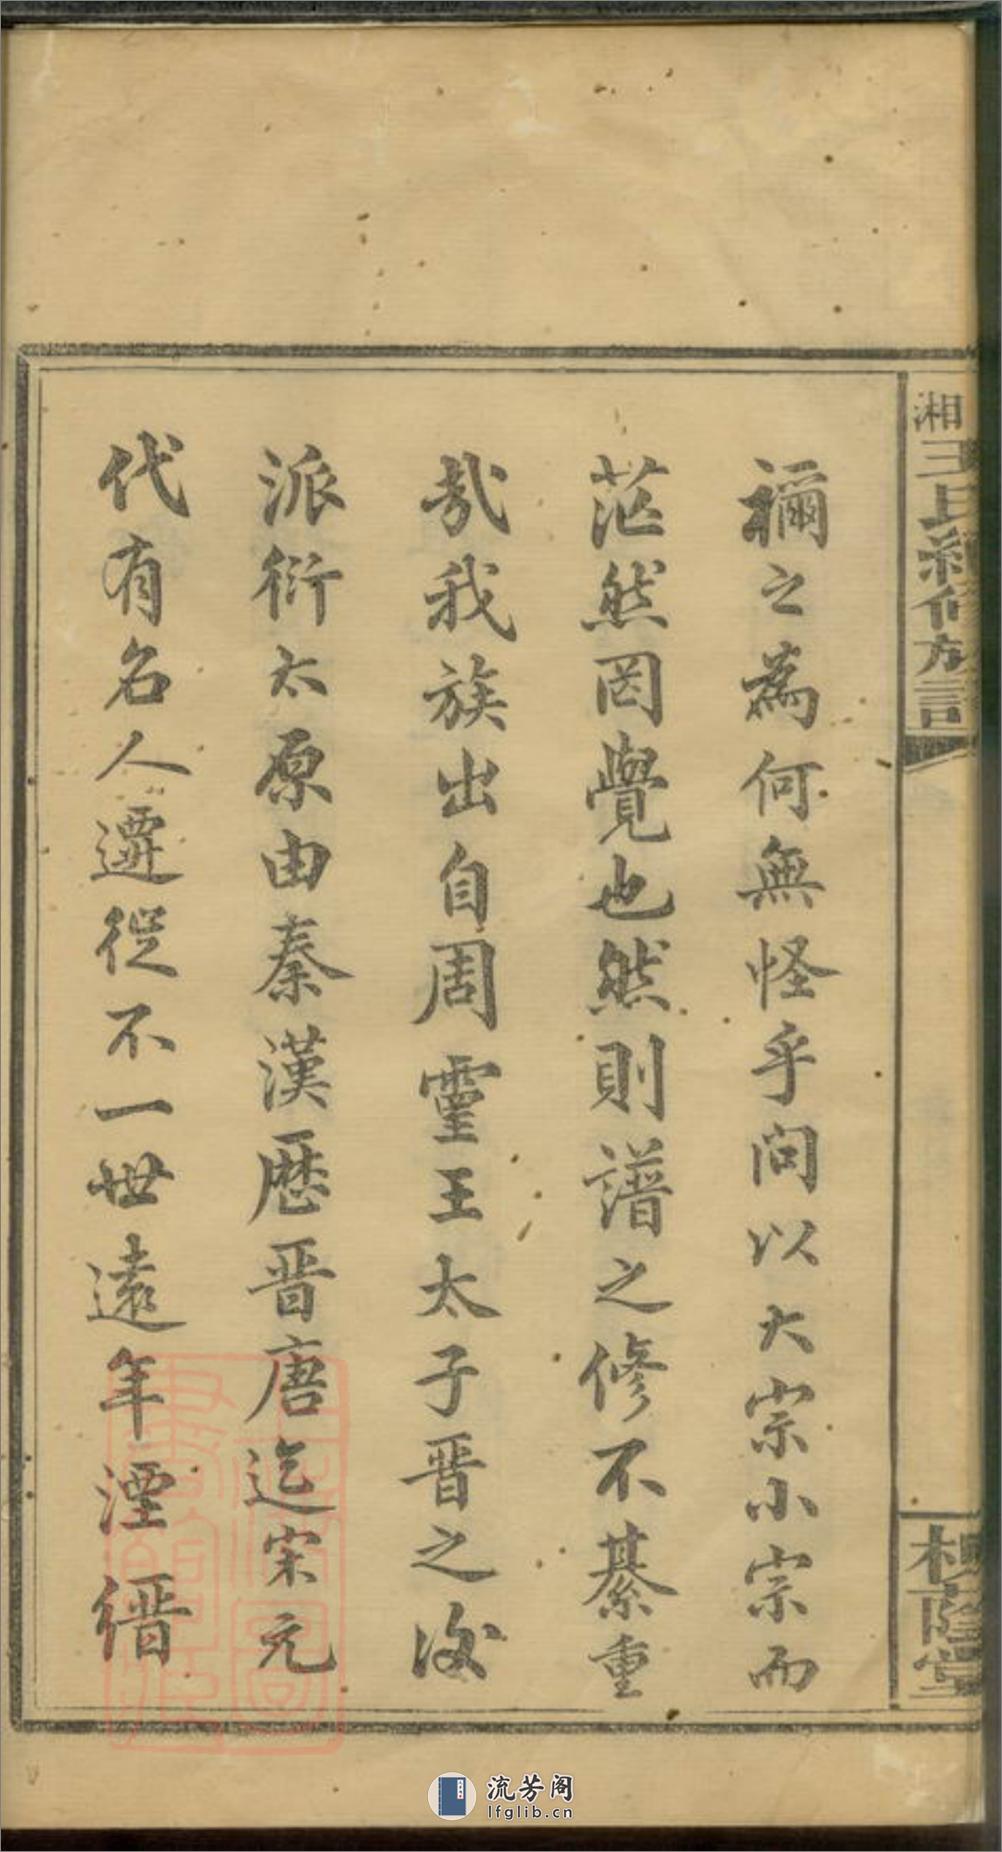 湘 王氏續修族譜
槐蔭堂
禰之為何無怪乎問以大宗小宗而
茫然罔覺也然則譜之修不綦重
哉我族出自周靈王太子晋之后
派衍太原由秦漢歷晋唐迄宋元
代有名人遷徙不一世遠年湮縉
流芳阁
lfglib.cn